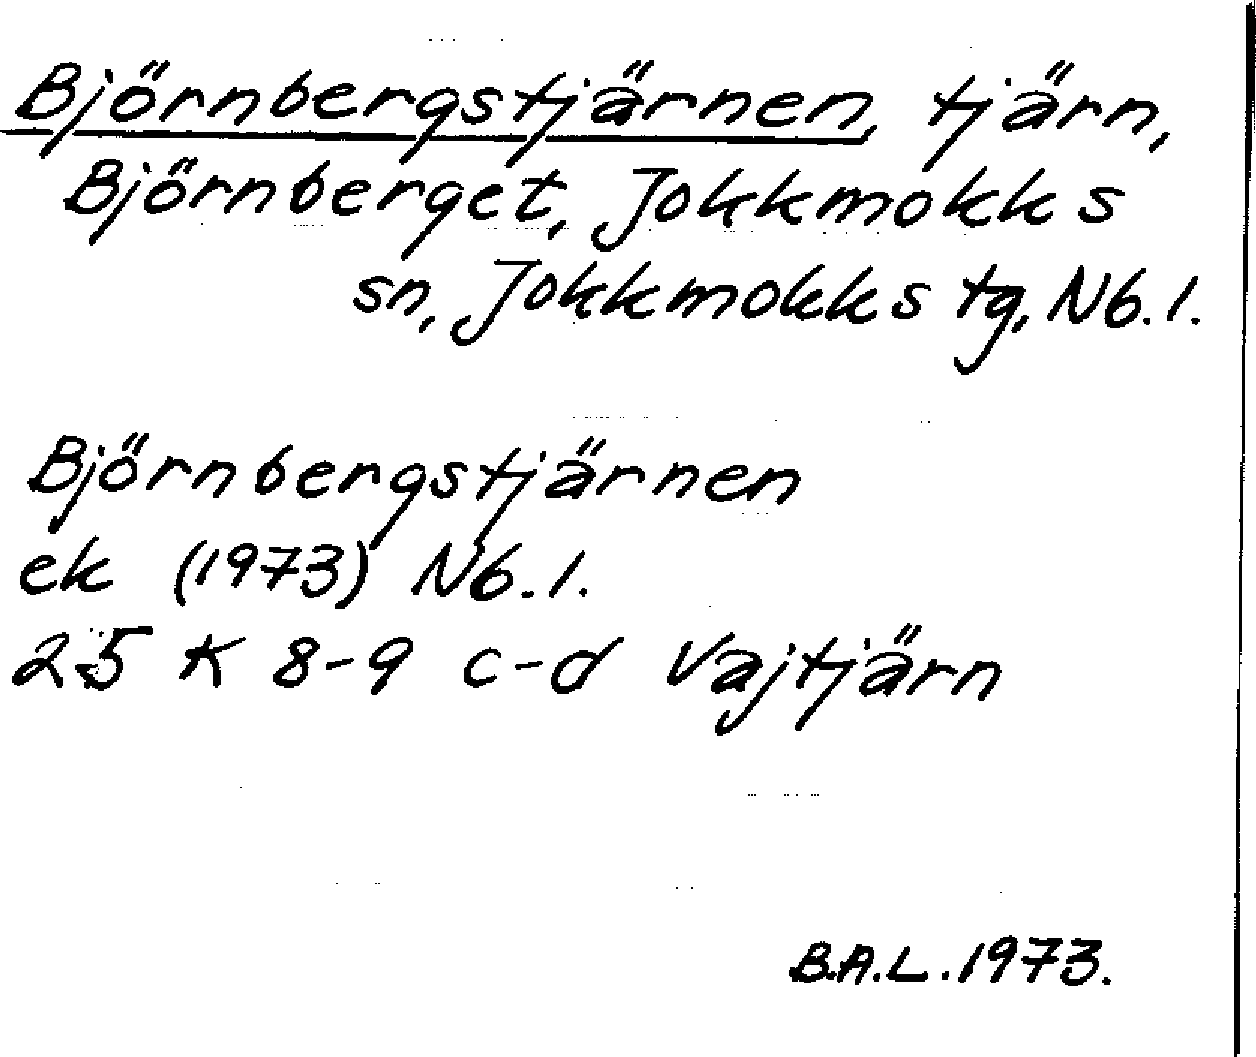 Björnbergstjärnen, tjärn,
Björnberget, Jokkmokks
sn, Jokkmokks tg, Nb. l.
Björnbergstjärnen
ek (1973) Nb. l.
25 K 8-9 c-d Vajtjärn
B.A.L. 1973.